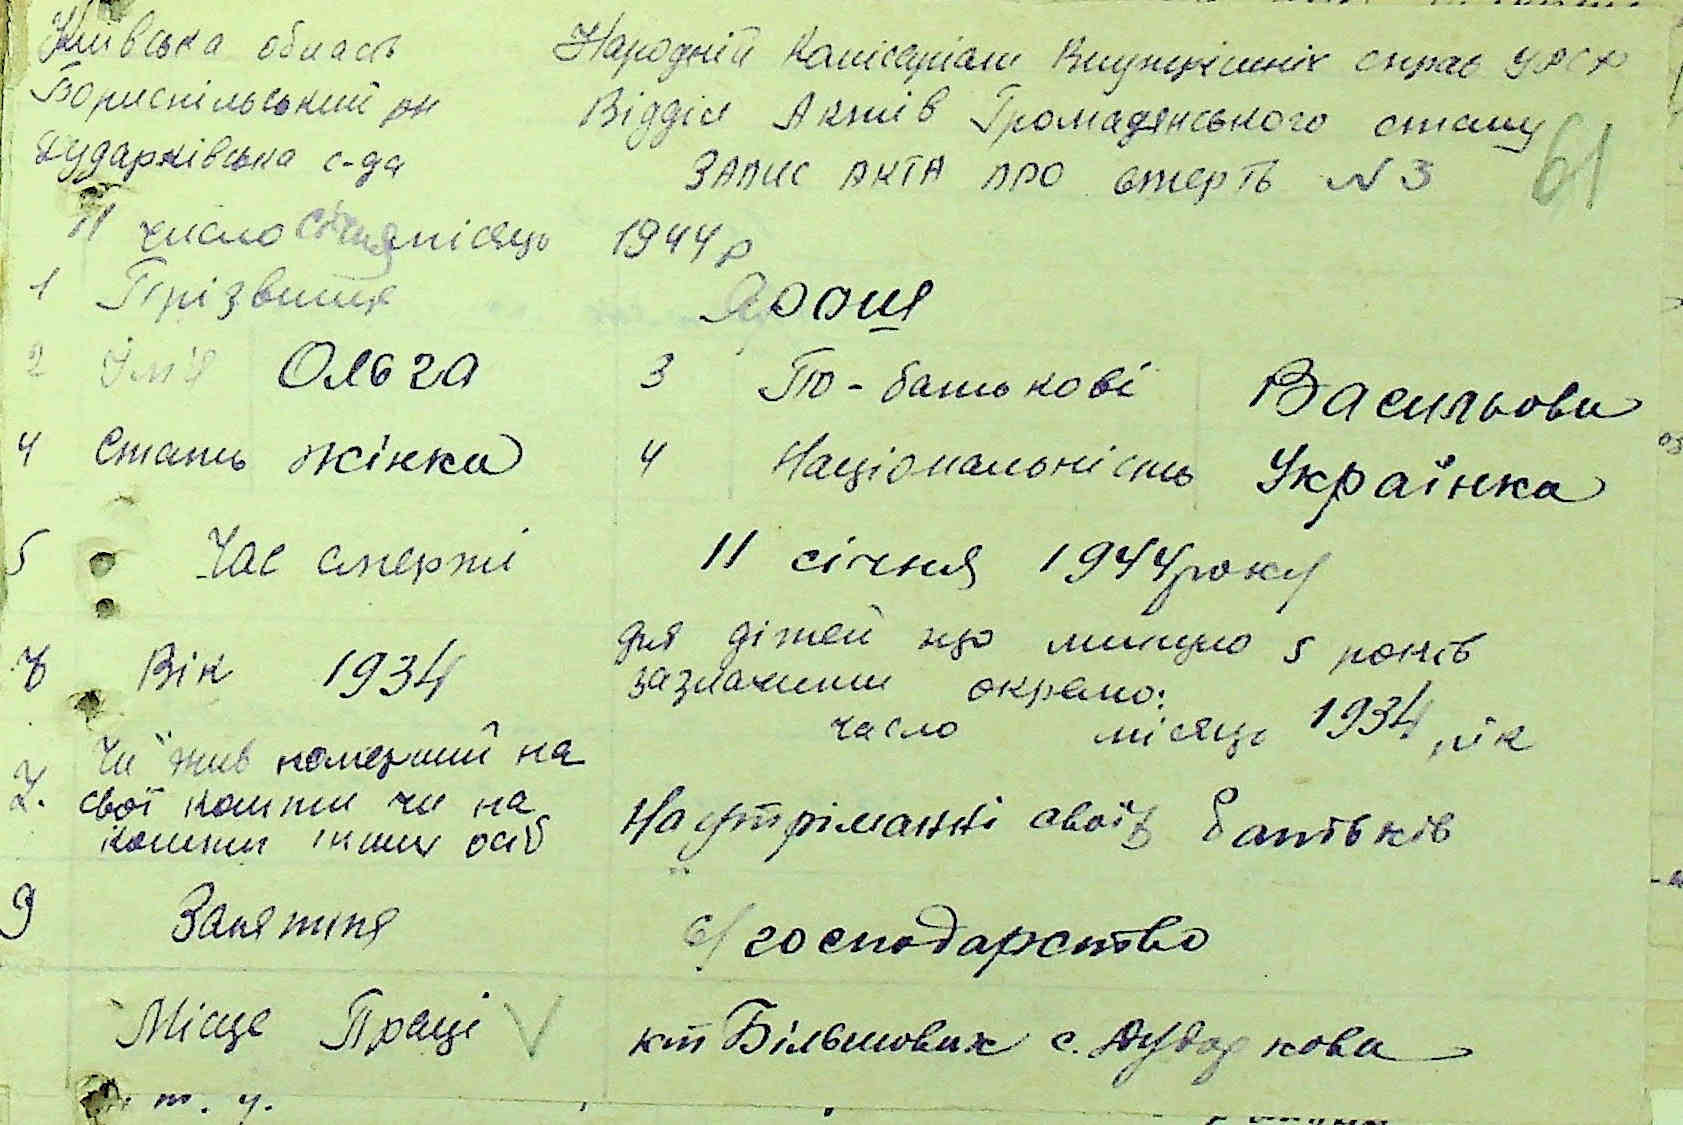 Київська область Народній Комісаріат Внутрішніх справ УРСР
Бориспільський рн Відділ Актів Громадянського стану
Дударківська с-да ЗАПИС АКТА ПРО смерть N 3 61
11 число січня місяць 1944 р
1 Прізвище Яроша
2 Ім'я Ольга 3 По-батькові Васильови
4 Стать жінка 4 Національність Українка
5 Час смерті 11 січня 1944 року
Вік 1934 для дітей що минуло 5 років
зазначити окремо:
число місяць 1934 рік
7. Чи жив померший на
свої кошти чи на
кошти інших осіб На утріманні своїх батьків
9 Заняття с/господарство
Місце Праці V кт Більшовик с. Дударкова
т. у.